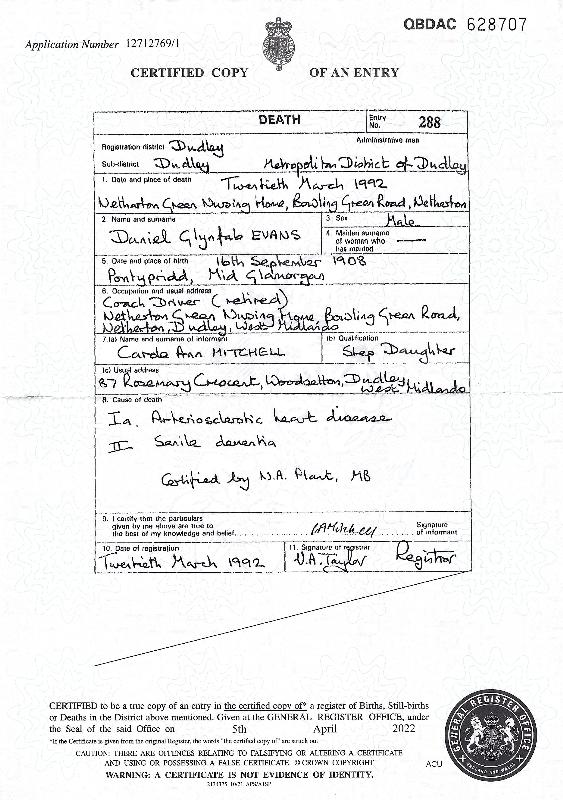 QBDAC 628707
Application Number 12712769/1
CERTIFIED COPY OF AN ENTRY
DEATH
Entry No. 288
Registration district Dudley
Administrative area
Sub-district Dudley
Metropolitan District of Dudley
1. Date and place of death
Twentieth March 1992
Netherton Green Nursing Home, Bowling Green Road, Netherton
2. Name and surname
Daniel Glynfab EVANS
3. Sex
Male
4. Maiden surname of woman who has married
5. Date and place of birth
16th September 1908
Pontypridd, Mid Glamorgan
6. Occupation and usual address
Coach Driver (retired)
Netherton Green Nursing Home, Bowling Green Road,
Netherton, Dudley, West Midlands
7.(a) Name and surname of informant
Carole Ann MITCHELL
(b) Qualification
Step Daughter
(c) Usual address
87 Rosemary Crescent, Woodsetton, Dudley,
West Midlands
8. Cause of death
Ia. Arteriosclerotic heart disease
II Senile dementia
Certified by N.A. Plant, MB
9. I certify that the particulars
given by me above are true to
the best of my knowledge and belief
CAMitchell
Signature of informant
10. Date of registration
Twentieth March 1992
11. Signature of registrar
N.A. Taylor
Registrar
CERTIFIED to be a true copy of an entry in the certified copy of* a register of Births, Still-births
or Deaths in the District above mentioned. Given at the GENERAL REGISTER OFFICE, under
the Seal of the said Office on 5th April 2022
*If the Certificate is given from the original Register, the words "the certified copy of" are struck out.
CAUTION: THERE ARE OFFENCES RELATING TO FALSIFYING OR ALTERING A CERTIFICATE
AND USING OR POSSESSING A FALSE CERTIFICATE. © CROWN COPYRIGHT
WARNING: A CERTIFICATE IS NOT EVIDENCE OF IDENTITY.
ACU
GENERAL REGISTER OFFICE
ENGLAND AND WALES